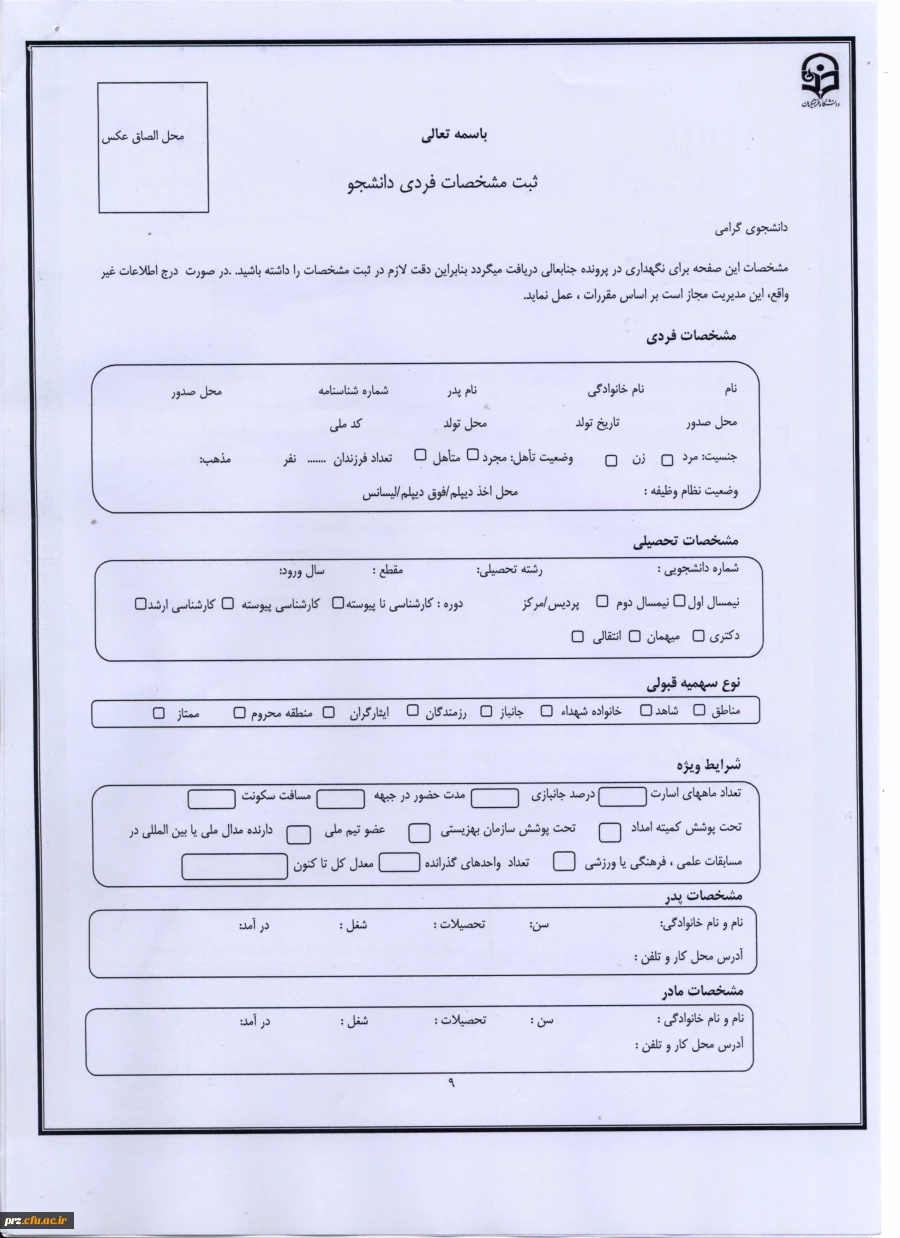 دانشگاه فرهنگیان
محل الصاق عکس
باسمه تعالی
ثبت مشخصات فردی دانشجو
دانشجوی گرامی
مشخصات این صفحه برای نگهداری در پرونده جنابعالی دریافت میگردد بنابراین دقت لازم در ثبت مشخصات را داشته باشید. .در صورت درج اطلاعات غیر
واقع، این مدیریت مجاز است بر اساس مقررات ، عمل نماید.
مشخصات فردی
نام نام خانوادگی نام پدر شماره شناسنامه محل صدور
محل صدور تاریخ تولد محل تولد کد ملی
جنسیت: مرد □ زن □ وضعیت تأهل: مجرد □ متأهل □ تعداد فرزندان ....... نفر مذهب:
وضعیت نظام وظیفه : محل اخذ دیپلم/فوق دیپلم/لیسانس
مشخصات تحصیلی
شماره دانشجویی : رشته تحصیلی: مقطع : سال ورود:
نیمسال اول □ نیمسال دوم □ پردیس/مرکز دوره : کارشناسی نا پیوسته □ کارشناسی پیوسته □ کارشناسی ارشد □
دکتری □ میهمان □ انتقالی □
نوع سهمیه قبولی
مناطق □ شاهد □ خانواده شهداء □ جانباز □ رزمندگان □ ایثارگران □ منطقه محروم □ ممتاز □
شرایط ویژه
تعداد ماههای اسارت درصد جانبازی مدت حضور در جبهه مسافت سکونت
تحت پوشش کمیته امداد تحت پوشش سازمان بهزیستی عضو تیم ملی دارنده مدال ملی یا بین المللی در
مسابقات علمی ، فرهنگی یا ورزشی تعداد واحدهای گذرانده معدل کل تا کنون
مشخصات پدر
نام و نام خانوادگی: سن: تحصیلات : شغل : در آمد:
آدرس محل کار و تلفن :
مشخصات مادر
نام و نام خانوادگی : سن : تحصیلات : شغل : در آمد:
آدرس محل کار و تلفن :
۹
prz.cfu.ac.ir